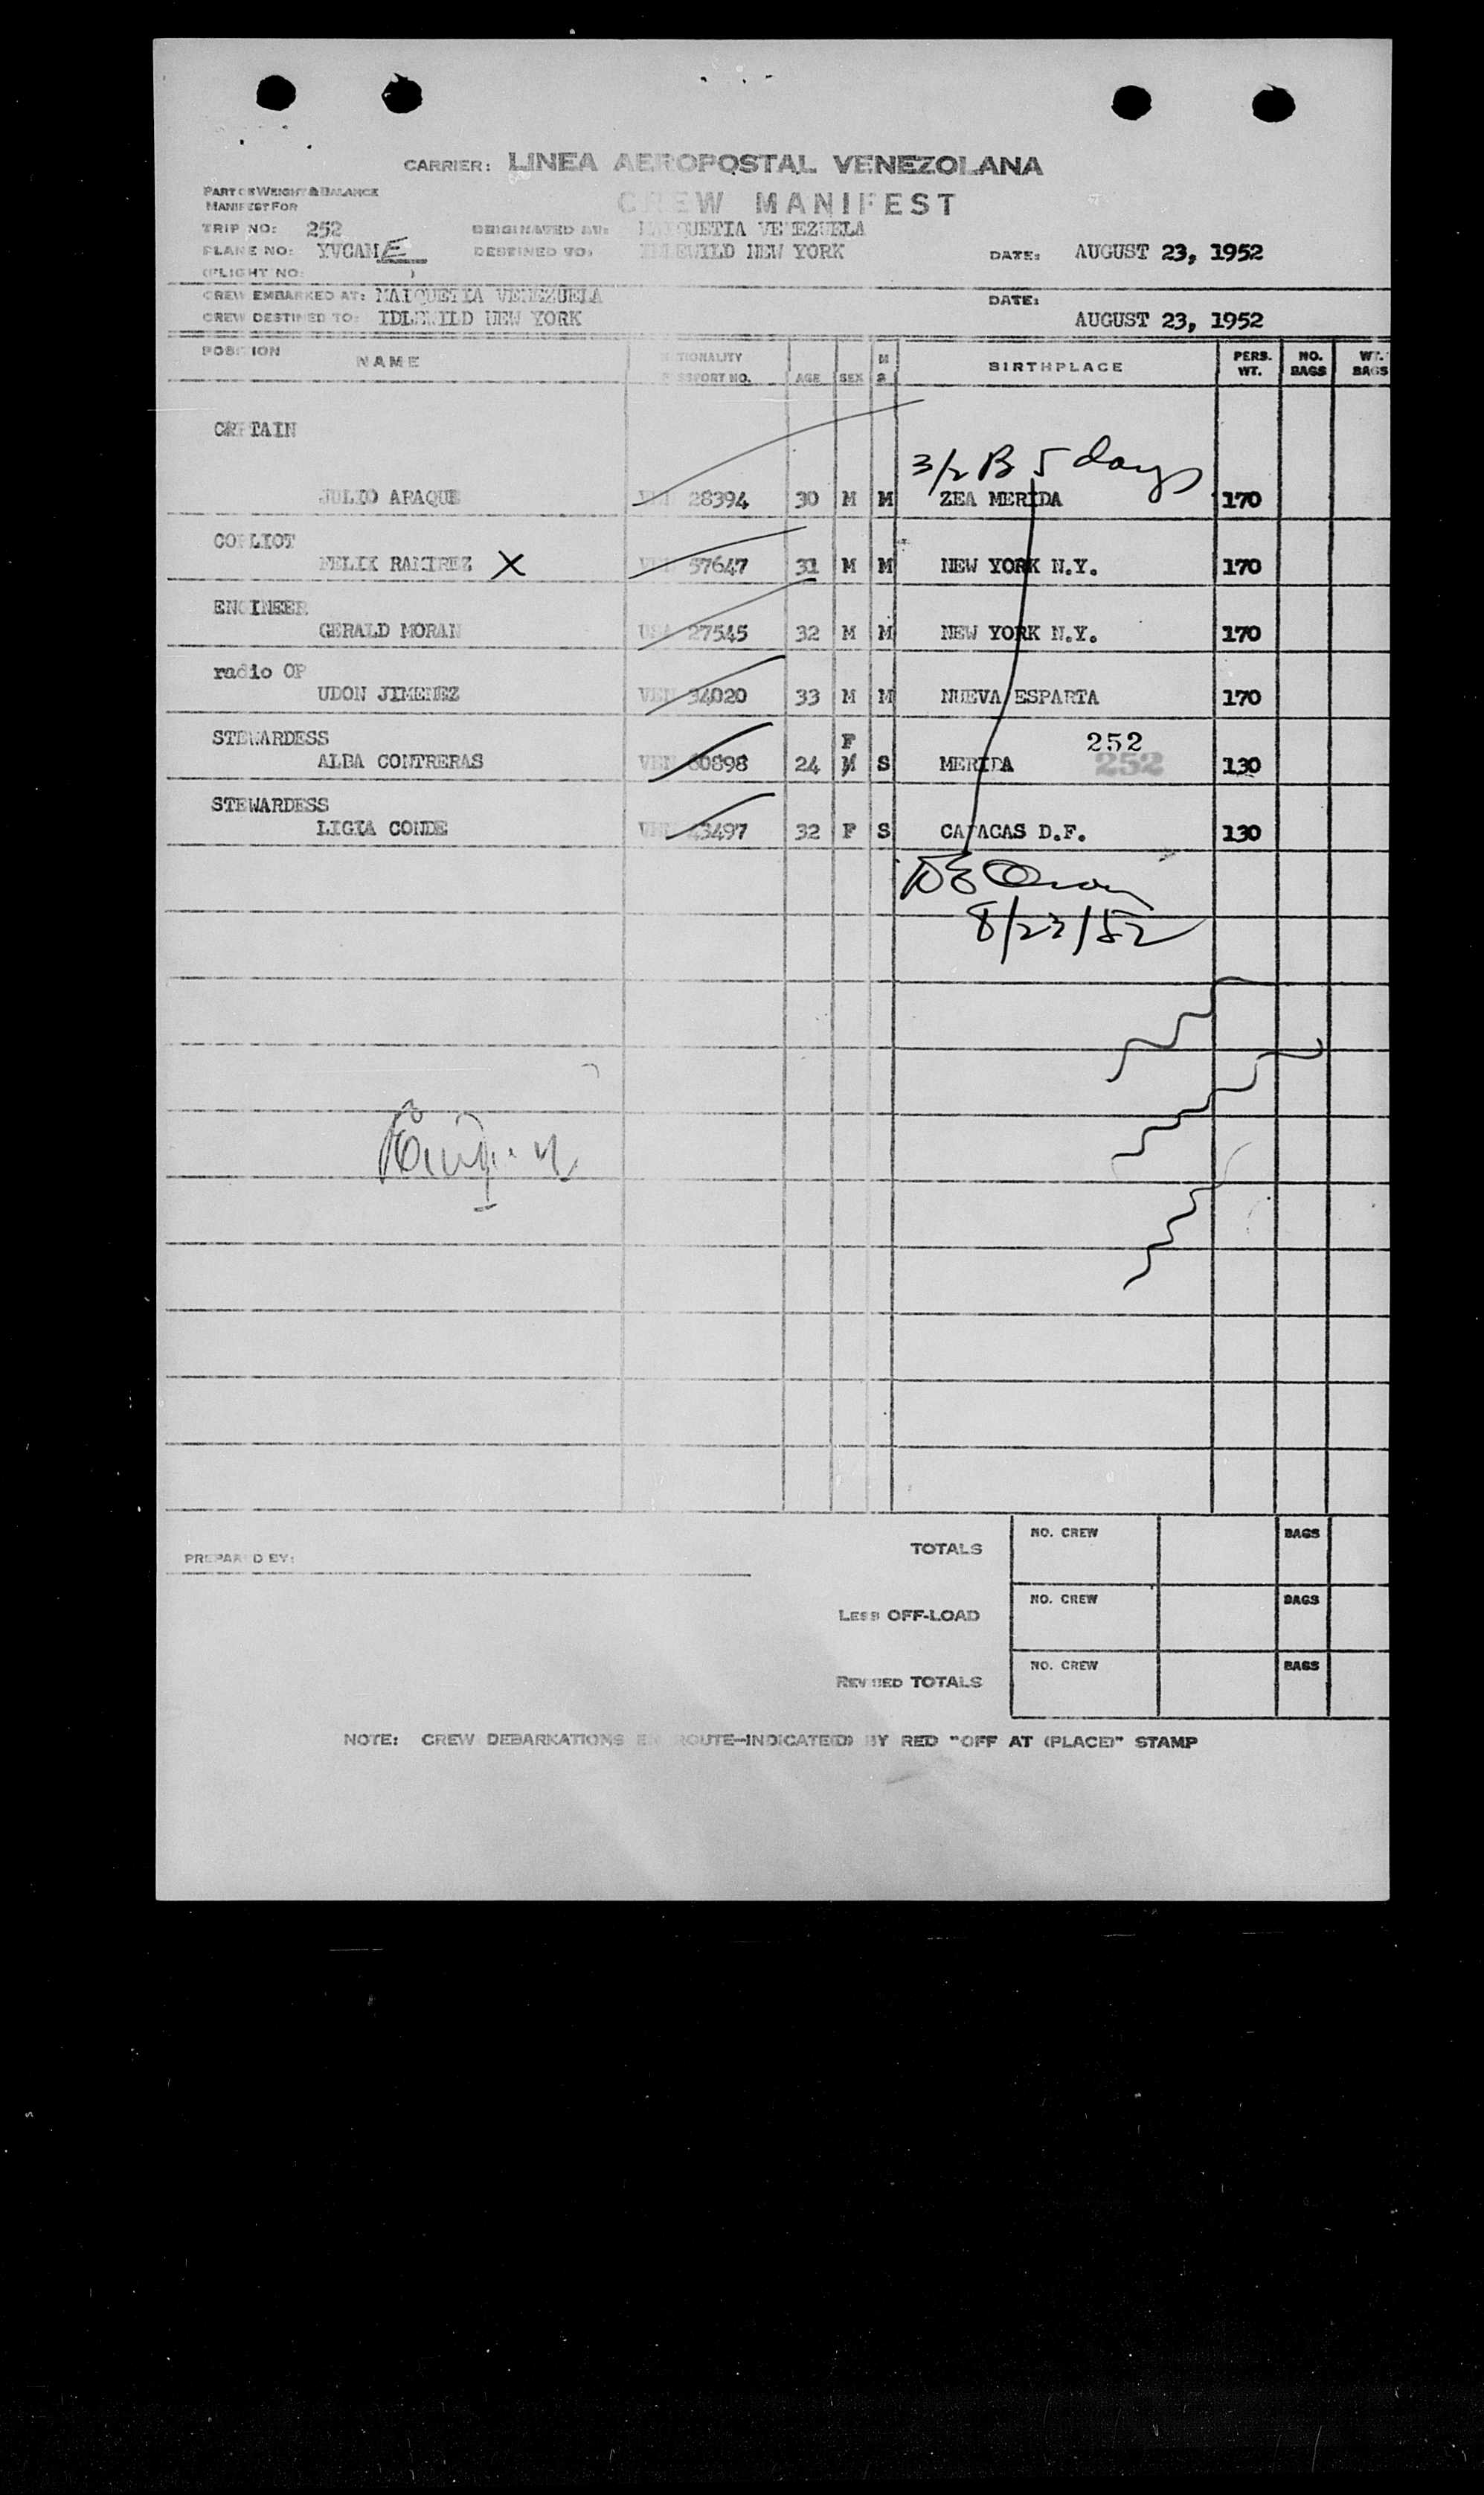 CARRIER: LINEA AEROPOSTAL VENEZOLANA
PART OF WEIGHT & BALANCE
MANIFEST FOR
CREW MANIFEST
TRIP NO: 252 ORIGINATED AT: MAIQUETIA VENEZUELA
PLANE NO: YVCAME DESTINED TO: IDLEWILD NEW YORK DATE: AUGUST 23, 1952
(FLIGHT NO: )
CREW EMBARKED AT: MAIQUETIA VENEZUELA DATE:
CREW DESTINED TO: IDLEWILD NEW YORK AUGUST 23, 1952
POSITION NAME NATIONALITY PASSPORT NO. AGE SEX M S BIRTHPLACE PERS. WT. NO. BAGS WT. BAGS
CAPTAIN
3/2 B 5 days
JULIO ARAQUE VEN 28394 30 M M ZEA MERIDA 170
COPLIOT
FELIX RAMIREZ X VEN 57647 31 M M NEW YORK N.Y. 170
ENGINEER
GERALD MORAN USA 27545 32 M M NEW YORK N.Y. 170
radio OP
UDON JIMENEZ VEN 34020 33 M M NUEVA ESPARTA 170
STEWARDESS F 252
ALBA CONTRERAS VEN 60898 24 M S MERIDA 252 130
STEWARDESS
LIGIA CONDE VEN 43497 32 F S CARACAS D.F. 130
8/23/52
PREPARED BY:
TOTALS NO. CREW BAGS
LESS OFF-LOAD NO. CREW BAGS
REVISED TOTALS NO. CREW BAGS
NOTE: CREW DEBARKATIONS EN ROUTE—INDICATE(D) BY RED "OFF AT (PLACE)" STAMP